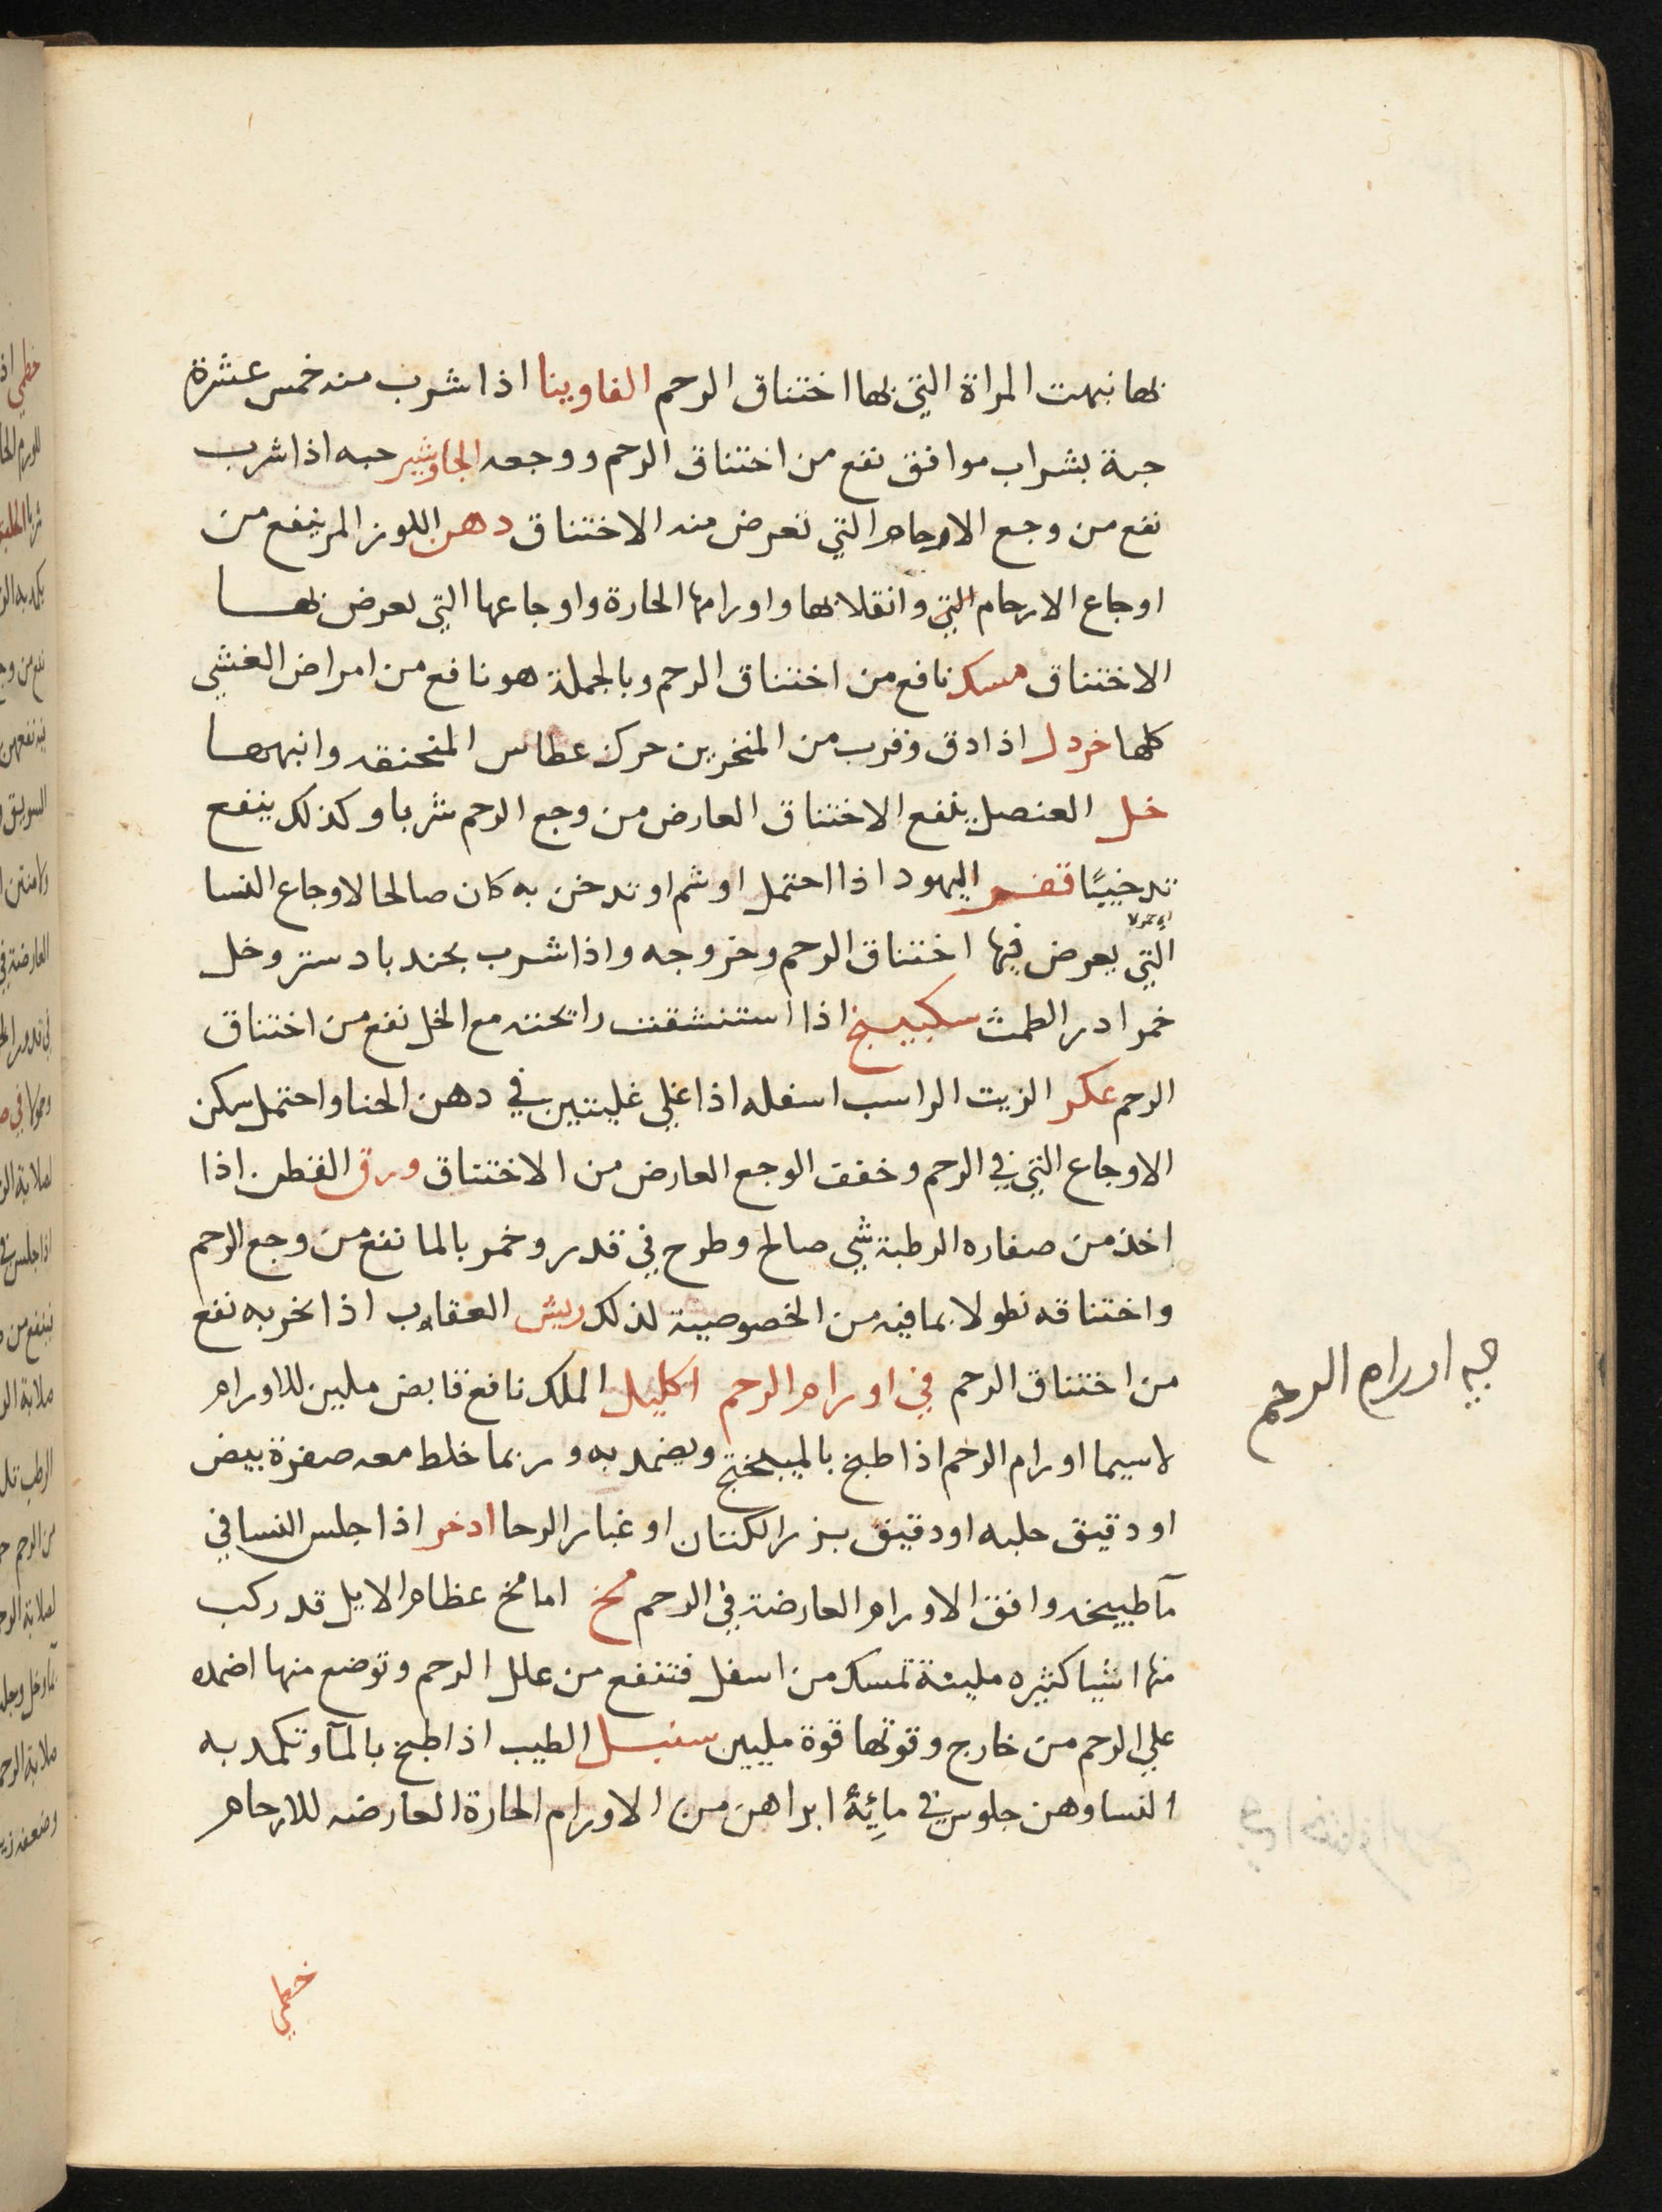 بها نبهت المراة التي بها اختناق الرحم الفاوينا اذا شرب منه خمس عشرة
حبة بشراب موافق نفع من اختناق الرحم ووجعه الجاوشير حبه اذا شرب
نفع من وجع الارحام التي تعرض منه الاختناق دهن اللوز المر ينفع من
اوجاع الارحام التي وانقلابها واورامها الحارة واوجاعها التي يعرض بها
الاختناق مسك نافع من اختناق الرحم وبالجملة هو نافع من امراض الغشي
كلها خردل اذا دق وقرب من المنخرين حرك عطاس المنخنقه وانبهها
خل العنصل ينفع الاختناق العارض من وجع الرحم شربا وكذلك ينفع
تدخينًا قفر اليهود اذا احتمل او شم او تدخن به كان صالحا لاوجاع النسا
التي يعرض فيها اختناق الرحم وخروجه واذا شرب بجندبادستر وخل
خمر ادر الطمث سكبينج اذا استنشقت رايحته مع الخل نفع من اختناق
الرحم عكر الزيت الراسب اسفله اذا غلي غليتين في دهن الحنا واحتمل سكن
الاوجاع التي في الرحم وخفف الوجع العارض من الاختناق ورق القطن اذا
اخذ من صغاره الرطبة شي صالح وطرح في قدر وخمر بالما نفع من وجع الرحم
واختناقه نطولا بما فيه من الخصوصية لذلك ريش العقاب اذا بخر به نفع
من اختناق الرحم في اورام الرحم اكليل الملك نافع قابض ملين للاورام
لاسيما اورام الرحم اذا طبخ بالميبختج ويضمد به وربما خلط معه صفرة بيض
او دقيق حلبه او دقيق بزر الكتان او غبار الرحا ادخر اذا جلس النسا في
مآ طبيخه وافق الاورام العارضة في الرحم مخ اما مخ عظام الايل قد ركب
منها اشيا كثيره ملينة تمسك من اسفل فتنفع من علل الرحم وتوضع منها اضمده
علي الرحم من خارج وقوتها قوة مليين سنبل الطيب اذا طبخ بالمآ وتكمد به
النسا وهن جلوس في مائِهٔ ابراهن من الاورام الحارة العارضه للارحام
في اورام الرحم
خطمي